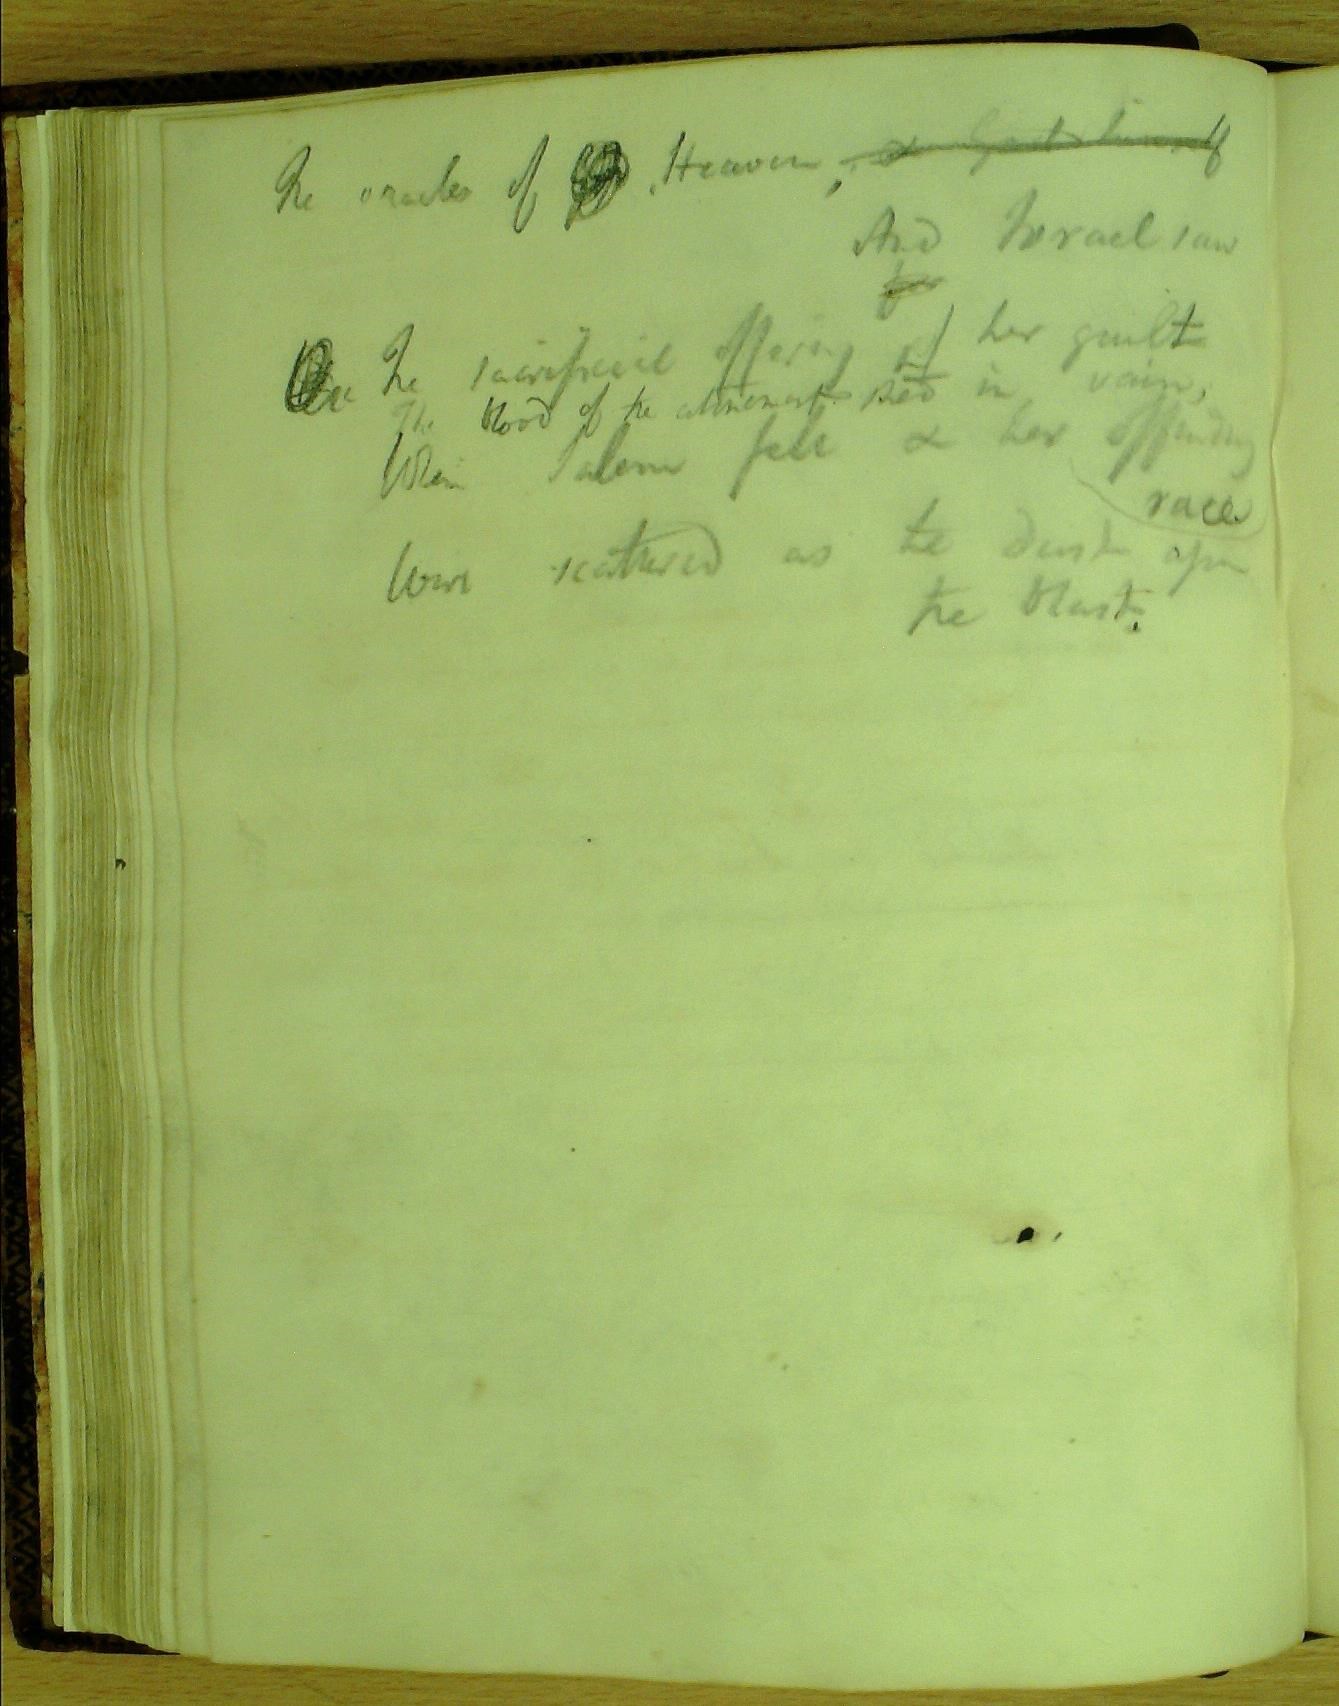 The oracles of Heaven, & God himself
And Israel saw
The sacrificial offering of her guilt
The blood of the atonement shed in vain,
When Salem fell & her offending
race
Were scattered as the dust upon
the blast.